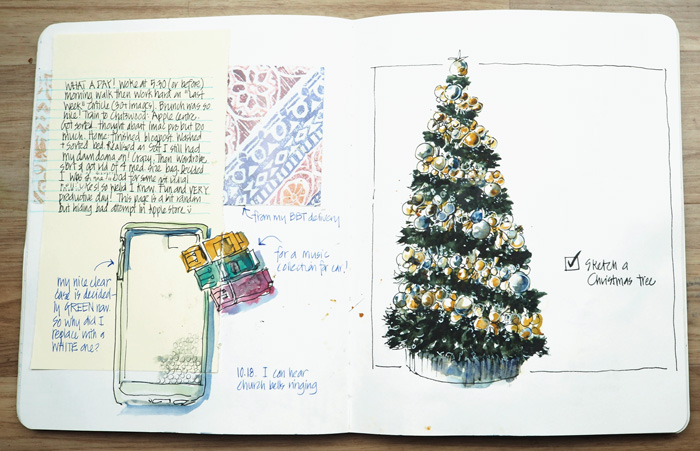 WHAT A DAY! Woke at 5.30 (or before)
morning walk then work hard on "Last
Week" article (30+ images). Brunch was so
nice! Train to Chatswood: Apple Centre.
Got sorted thought about imac pro but too
much. Home: finished blogpost. Washed
+ sorted bed. Realised at 5oct I still had
my damdama on! Crazy. Then wardrobe
sort & got rid of 4 med. size bag. Decided
I was
Yes! so weird I know. Fun and VERY
productive day! This page is a bit random
but hiding bad attempt in Apple store
from my BBT delivery
for a music
collection for car!
my nice clear
case is decided-
ly GREEN now.
So why did I
replace with a
WHITE one?
10.18. I can hear
church bells ringing
Sketch a
Christmas tree